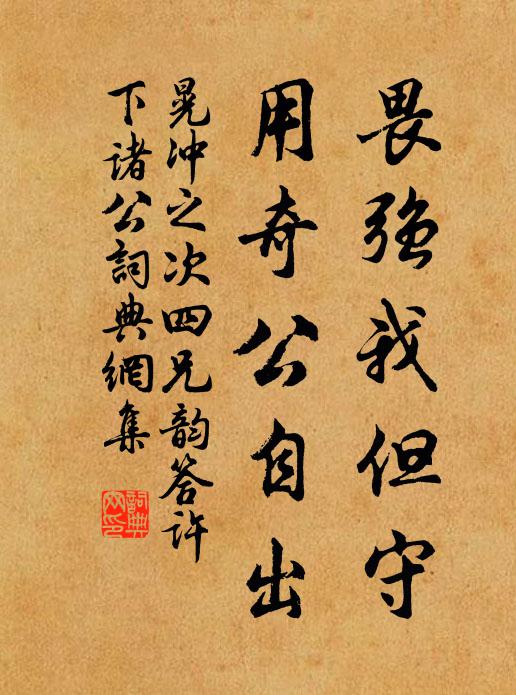 畏強我但守
用奇公自出
晁沖之次四兄韵答許
下诸公詞典網集
詞典网印